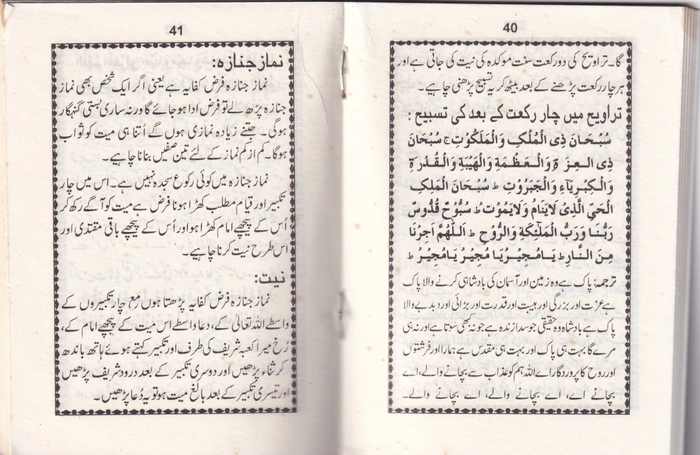 40
گا۔ تراویح کی دو رکعت سنت موکدہ کی نیت کی جاتی ہے اور
ہر چار رکعت پڑھنے کے بعد بیٹھ کر یہ تسبیح پڑھنی چاہیے۔
تراویح میں چار رکعت کے بعد کی تسبیح :
سُبْحَانَ ذِی الْمُلْکِ وَالْمَلَکُوْتِ ؕ سُبْحَانَ
ذِی الْعِزَّةِ وَالْعَظَمَةِ وَالْهَیْبَةِ وَالْقُدْرَةِ
وَالْکِبْرِیَآءِ وَالْجَبَرُوْتِ ؕ سُبْحَانَ الْمَلِکِ
الْحَیِّ الَّذِیْ لَایَنَامُ وَلَایَمُوْتُ ؕ سُبُّوْحٌ قُدُّوْسٌ
رَبُّنَا وَرَبُّ الْمَلٰٓئِکَةِ وَالرُّوْحِ ؕ اَللّٰهُمَّ اَجِرْنَا
مِنَ النَّارِ ؕ یَا مُجِیْرُ یَا مُجِیْرُ یَا مُجِیْرُ ؕ
ترجمہ: پاک ہے وہ زمین اور آسمان کی بادشاہی کرنے والا پاک
ہے عزت اور بزرگی اور ہیبت اور قدرت اور بڑائی اور دبدبے والا
پاک ہے بادشاہ وہ حقیقی جو سدا زندہ ہے جو نہ کبھی سوتا ہے اور نہ ہی
مرے گا بہت ہی پاک اور بہت ہی مقدس ہے ہمارا اور فرشتوں
اور روح کا پروردگار اے اللہ ہم کو عذاب سے بچانے والے، اے
بچانے والے، اے بچانے والے، اے بچانے والے۔
41
نماز جنازہ:
نماز جنازہ فرض کفایہ ہے یعنی اگر ایک شخص بھی نماز
جنازہ پڑھ لے تو فرض ادا ہو جائے گا ورنہ ساری بستی گنہگار
ہوگی۔ جتنے زیادہ نمازی ہوں گے اُتنا ہی میت کو ثواب
ہوگا۔ کم از کم نماز کے لئے تین صفیں بنانا چاہیے۔
نماز جنازہ میں کوئی رکوع سجدہ نہیں ہے۔ اس میں چار
تکبیر اور قیام مطلب کھڑا ہونا فرض ہے میت کو آگے رکھ کر
اُس کے پیچھے امام کھڑا ہو اور اُس کے پیچھے باقی مقتدی اور
اس طرح نیت کرنا چاہیے۔
نیت:
نماز جنازہ فرض کفایہ پڑھتا ہوں مع چار تکبیروں کے
واسطے اللہ تعالیٰ کے، دعا واسطے اس میت کے پیچھے امام کے،
رُخ میرا کعبہ شریف کی طرف اور تکبیر کہتے ہوئے ہاتھ باندھ
کر ثناء پڑھیں اور دوسری تکبیر کے بعد درود شریف پڑھیں
اور تیسری تکبیر کے بعد بالغ میت ہو تو یہ دُعا پڑھیں۔